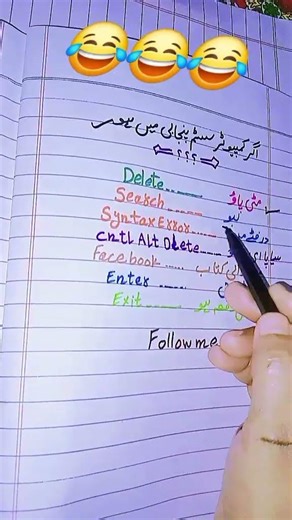 اگر کمپیوٹر سسٹم پنجابی میں ہو
؟؟؟
Delete ........ مٹی پاؤ
Search ........ لبو
Syntax Error ..... در فٹے
Cntl Alt Delete ..... سیاپا ای
Facebook ..... کتاب
Enter ......
Exit ........
Follow me